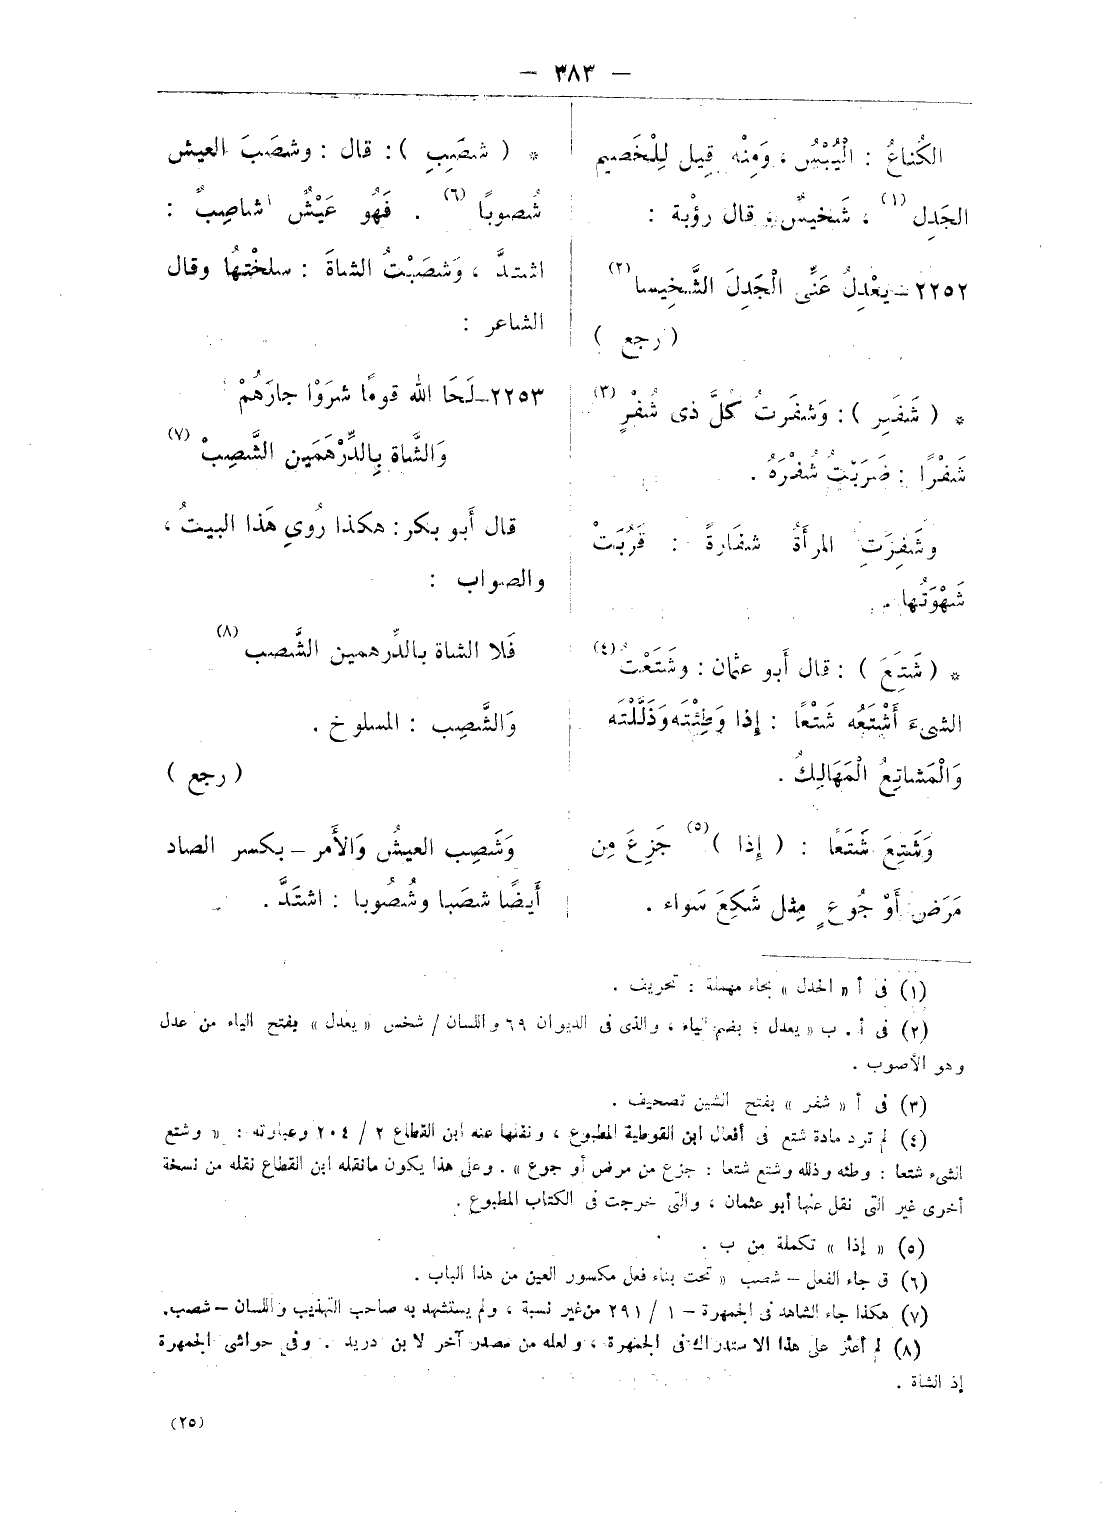 — ٣٨٣ —
الكُناعُ : الْيُبْسُ ، وَمِنْه قِيل لِلْخَصِيم
الجَدِل (١) ، شَخيسٌ ، قال رؤْبة :
٢٢٥٢ ـ يَعْدِلُ عَنِّى الْجَدِلَ الشَّخِيسا (٢)
( رجع )
* ( شَفَر ) : وَشفَرتُ كُلَّ ذى شُفْرٍ (٣)
شَفْرًا : ضَرَبْتُ شُفْرَهُ .
وشَفِرَتِ المرأةُ شفَارةً : قَرُبَتْ
شَهْوَتُها .
* ( شَتَعَ ) : قال أَبو عثمان : وشَتَعْتُ (٤)
الشىءَ أَشْتَعُه شَتْعًا : إِذا وَطِئْتَه وَذَلَّلْتَه
وَالْمَشاتِعُ الْمَهَالِكُ .
وَشَتِعَ شَتَعًا : ( إذا ) (٥) جَزِعَ مِن
مَرَضٍ أَوْ جُوعٍ مِثل شَكِعَ سَواء .
* ( شصَبِ ) : قال : وشصَبَ العيش
شُصوبًا (٦) . فَهُو عَيْشٌ شاصِبٌ :
اشتدَّ ، وَشصَبْتُ الشاةَ : سلخْتهُا وقال
الشاعر :
٢٢٥٣ ـ لَحَا الله قومًا شرَوْا جارَهُمْ
وَالشَّاة بِالدِّرْهَمَين الشَّصِبْ (٧)
قال أَبو بكر : هكذا رُوي هَذا البيتُ ،
والصواب :
فَلا الشاة بالدِّرهمين الشَّصب (٨)
وَالشَّصِب : المسلوخ .
( رجع )
وَشَصِب العيشُ وَالأَمر ـ بكسر الصاد
أَيضًا شصَبا وشُصُوبا : اشتَدَّ .
(١) فى أ « الحدل » بحاء مهملة : تحريف .
(٢) فى أ . ب « يعدل » بضم الياء ، والذى فى الديوان ٦٩ واللسان / شخس « يعدل » بفتح الياء من عدل
وهو الأصوب .
(٣) فى أ « شفر » بفتح الشين تصحيف .
(٤) لم ترد مادة شتع فى أفعال ابن القوطية المطبوع ، ونقلها عنه ابن القطاع ٢ / ٢٠٤ وعبارته : « وشتع
الشىء شتعا : وطئه وذلله وشتع شتعا : جزع من مرض أو جوع » . وعلى هذا يكون مانقله ابن القطاع نقله من نسخة
أخرى غير التى نقل عنها أبو عثمان ، والتى خرجت فى الكتاب المطبوع .
(٥) « إذا » تكملة من ب .
(٦) ق جاء الفعل – شصب « تحت بناء فعل مكسور العين من هذا الباب .
(٧) هكذا جاء الشاهد فى الجمهرة – ١ / ٢٩١ من غير نسبة ، ولم يستشهد به صاحب التهذيب واللسان – شصب.
(٨) لم أعثر على هذا الاستدراك فى الجمهرة ، ولعله من مصدر آخر لابن دريد . وفى حواشى الجمهرة
إذ الشاة .
(٢٥)